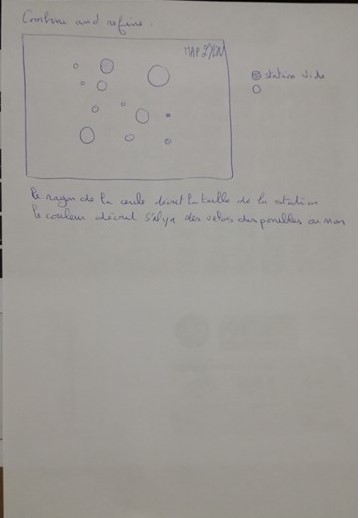 Combine and refine.
MAP LYON
station vide
Le rayon de la cercle décrit la taille de la station
la couleur décrit s'il y a des vélos disponibles ou non